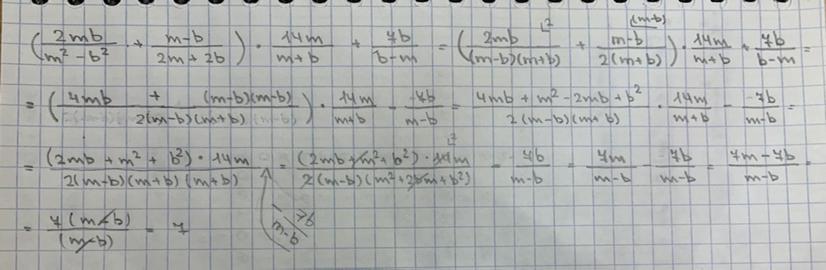 (2mb/(m² - b²) + (m-b)/(2m+2b)) · 14m/(m+b) + 7b/(b-m) = (2mb/((m-b)(m+b)) + (m-b)/(2(m+b))) · 14m/(m+b) + 7b/(b-m) =
= ((4mb + (m-b)(m-b))/(2(m-b)(m+b))) · 14m/(m+b) - 7b/(m-b) = (4mb + m² - 2mb + b²)/(2(m-b)(m+b)) · 14m/(m+b) - 7b/(m-b) =
= ((2mb + m² + b²) · 14m)/(2(m-b)(m+b)(m+b)) - 7b/(m-b) = ((2mb + m² + b²) · 14m)/(2(m-b)(m² + 2bm + b²)) - 7b/(m-b) = 7m/(m-b) - 7b/(m-b) = (7m - 7b)/(m-b) =
= 7(m-b)/(m-b) = 7